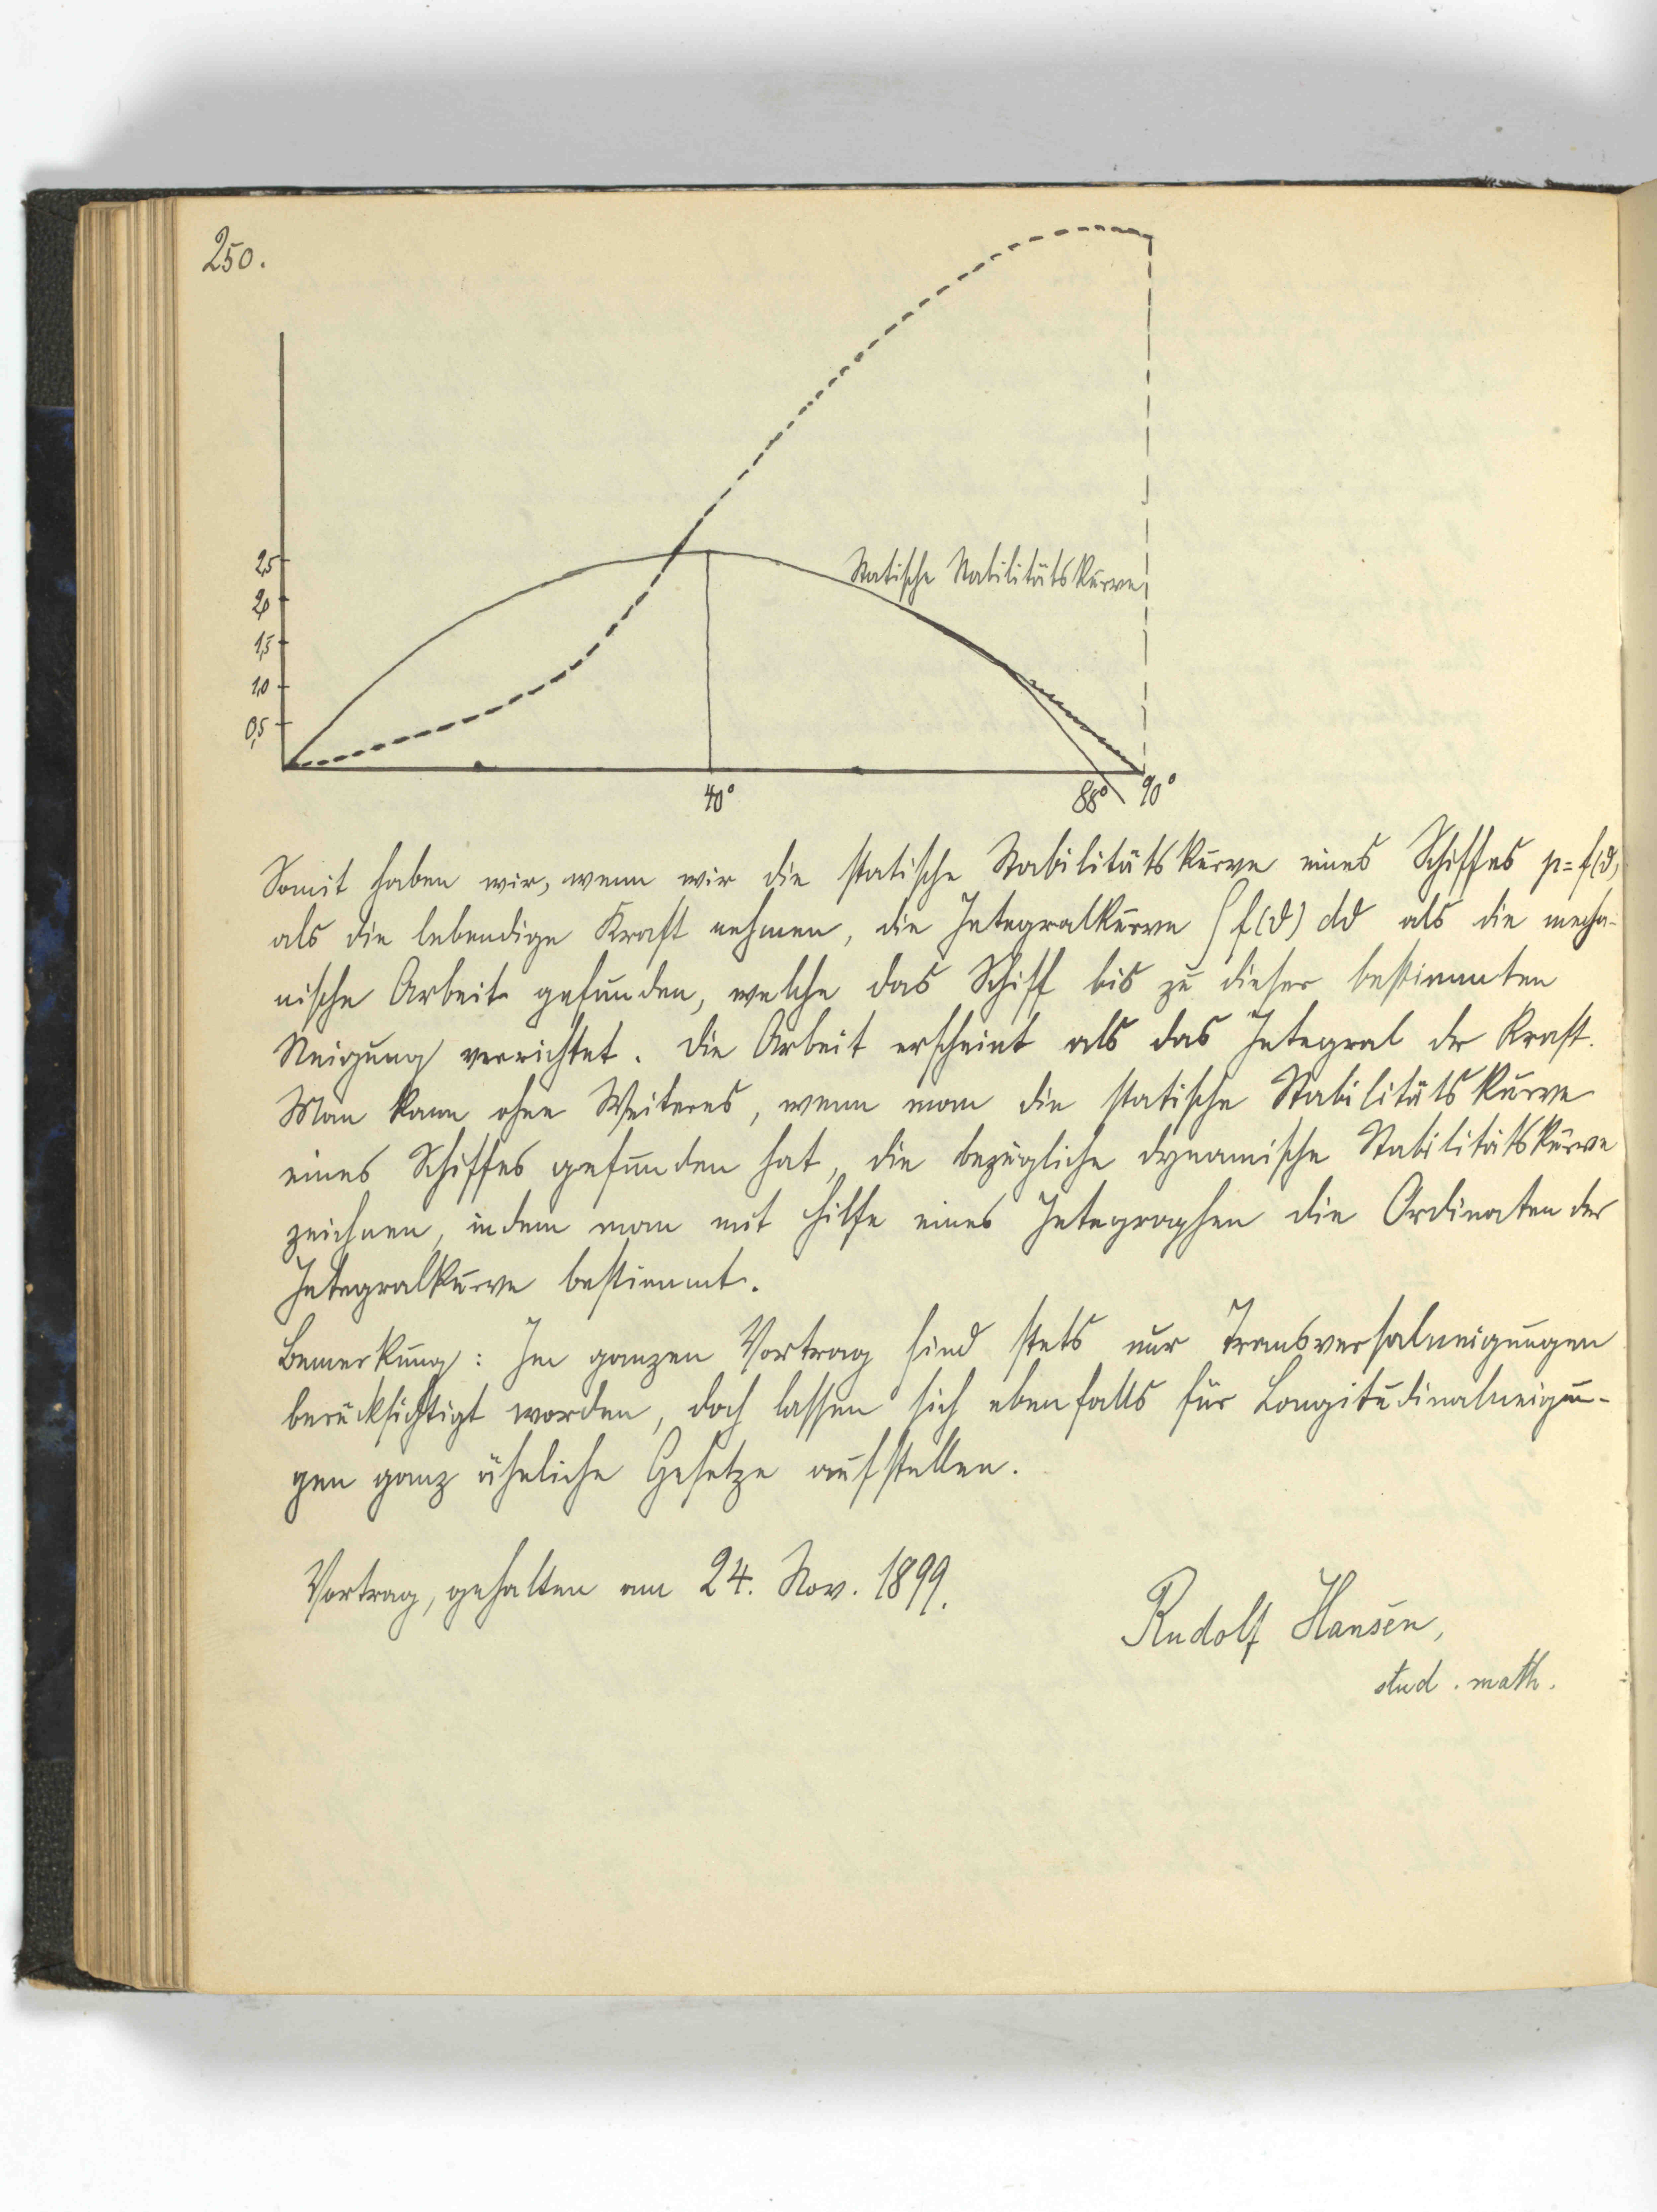 250.
2,5
2,0
1,5
1,0
0,5
Statische Stabilitätskurve
40°
88°
90°
Somit haben wir, wenn wir die statische Stabilitätskurve eines Schiffes p=f(ϑ)
als die lebendige Kraft nehmen, die Integralkurve ∫f(ϑ) dϑ als die mecha-
nische Arbeit gefunden, welche das Schiff bis zu dieser bestimmten
Neigung verrichtet. Die Arbeit erscheint als das Integral der Kraft.
Man kann ohne Weiteres, wenn man die statische Stabilitätskurve
eines Schiffes gefunden hat, die bezügliche dynamische Stabilitätskurve
zeichnen, indem man mit Hilfe eines Integraphen die Ordinaten der
Integralkurve bestimmt.
Bemerkung: Im ganzen Vortrag sind stets nur Transversalneigungen
berücksichtigt worden, doch lassen sich ebenfalls für Longitudinalneigun-
gen ganz ähnliche Gesetze aufstellen.
Vortrag, gehalten am 24. Nov. 1899.
Rudolf Hansen,
stud. math.